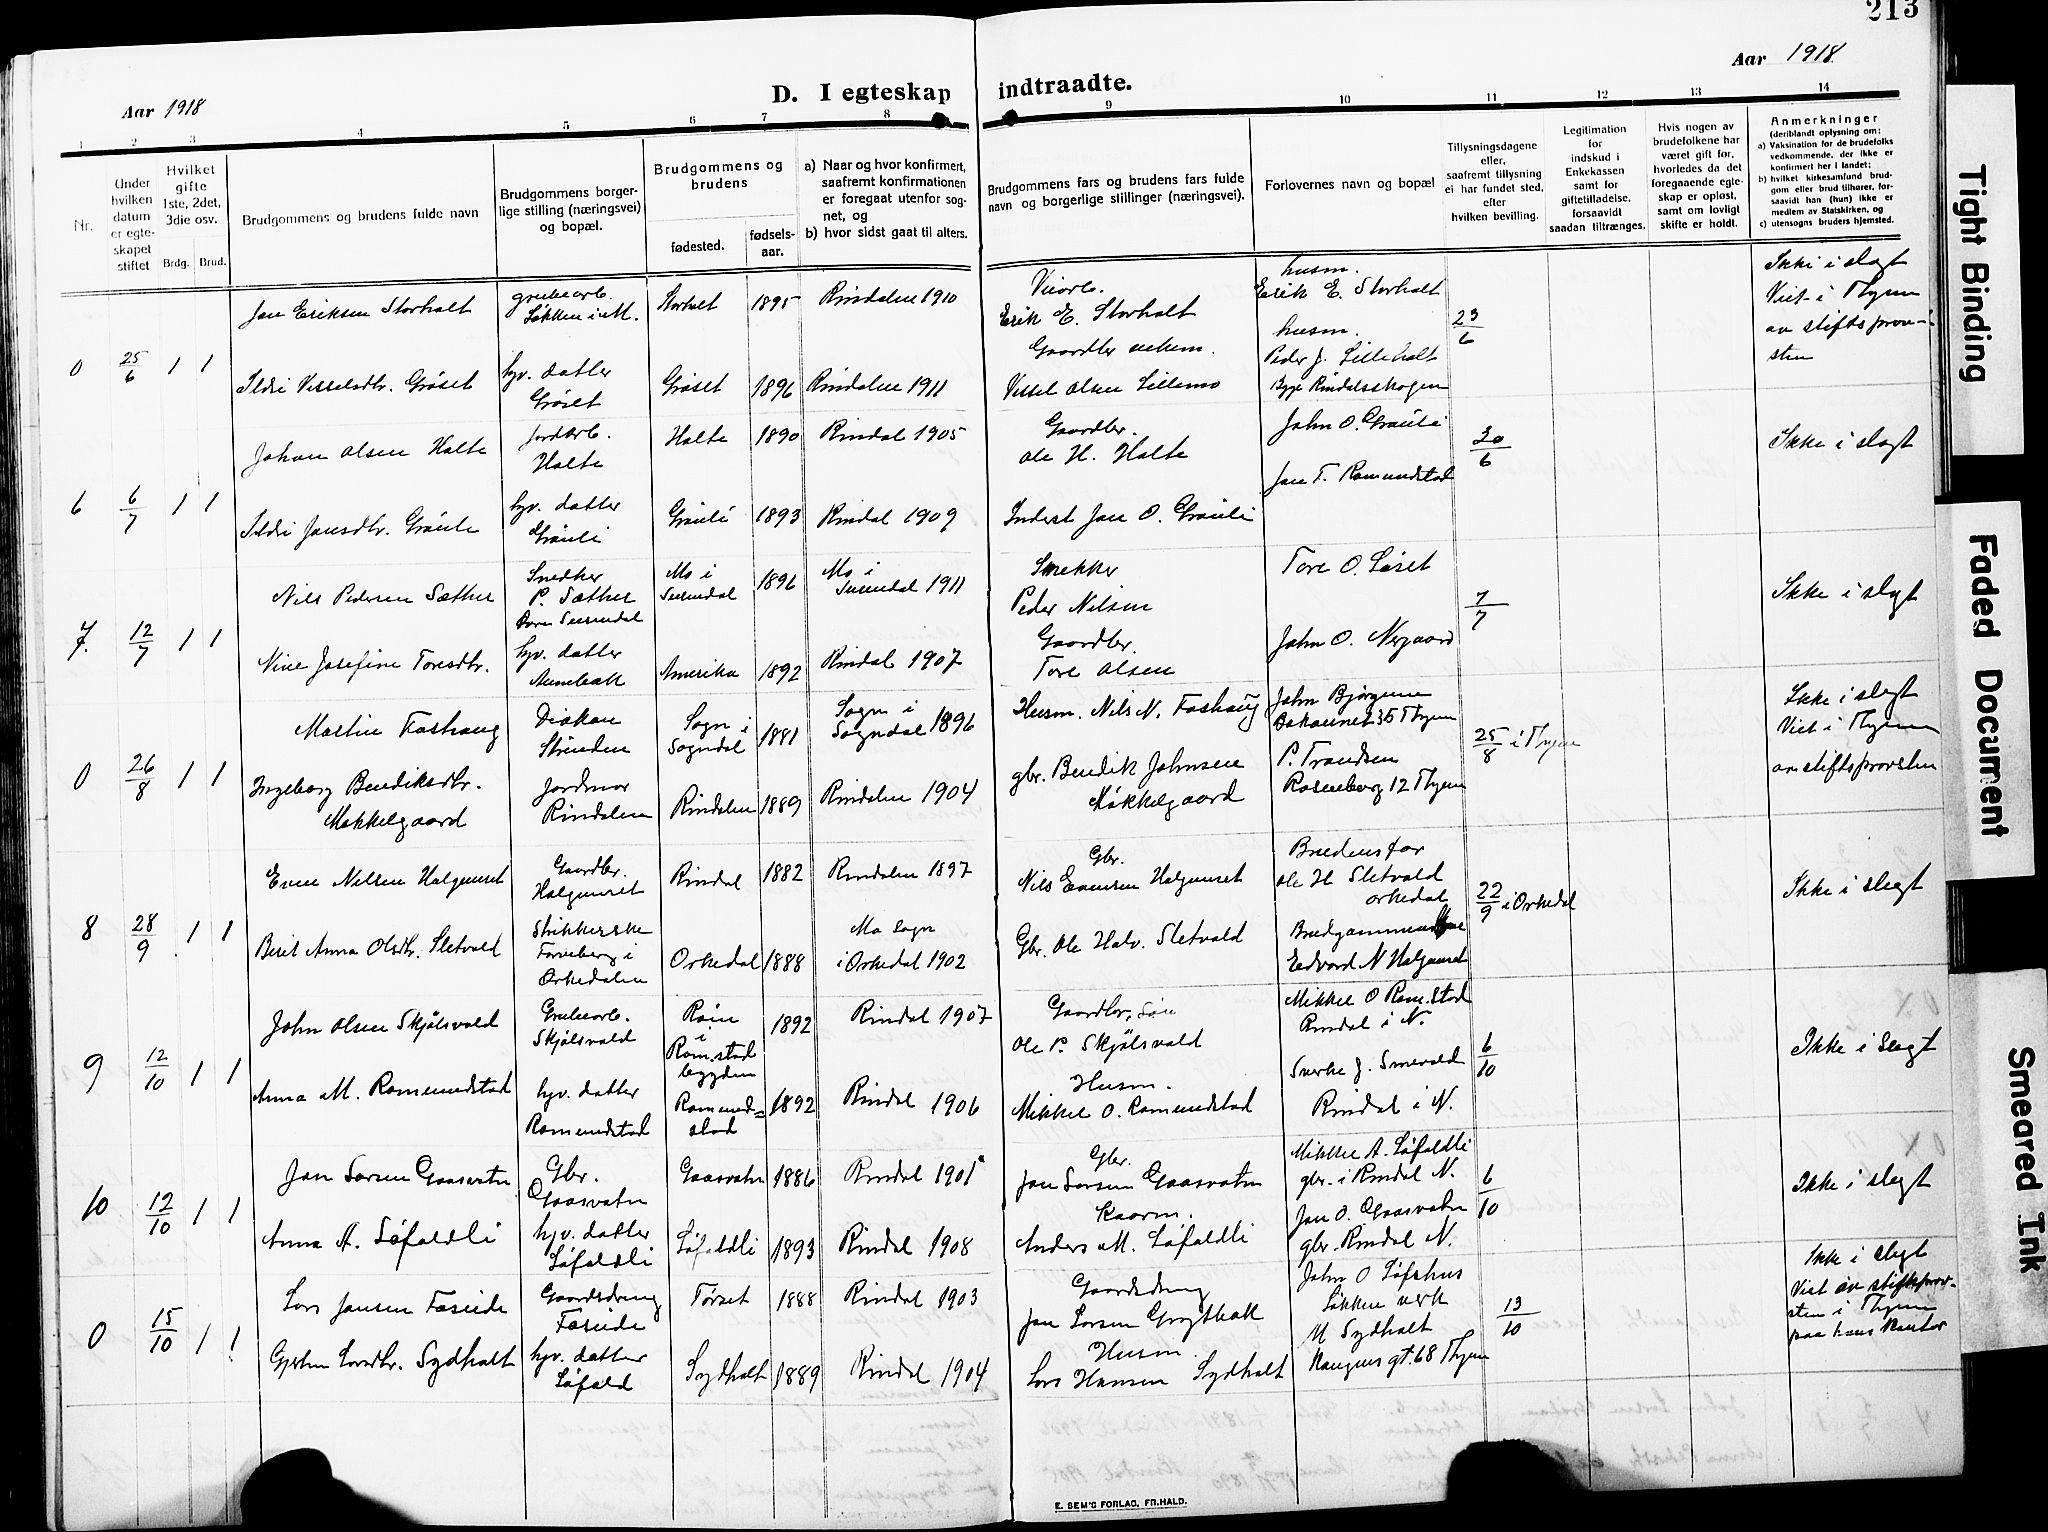 213
Aar 1918
D. I egteskap indtraadte.
Aar 1918
1 2 3 4 5 6 7 8 9 10 11 12 13 14
Nr.
Under hvilken datum er egteskapet stiftet
Hvilket gifte 1ste, 2det, 3die osv.
Brdg. Brud.
Brudgommens og brudens fulde navn
Brudgommens borgerlige stilling (næringsvei) og bopæl.
Brudgommens og brudens
fødested.
fødselsaar.
a) Naar og hvor konfirmert, saafremt konfirmationen er foregaat utenfor sognet, og
b) hvor sidst gaat til alters.
Brudgommens fars og brudens fars fulde navn og borgerlige stillinger (næringsvei).
Forlovernes navn og bopæl
Tillysningsdagene eller, saafremt tillysning ei har fundet sted, efter hvilken bevilling.
Legitimation for indskud i Enkekassen samt for giftetilladelse, forsaavidt saadan tiltrænges.
Hvis nogen av brudefolkene har været gift før, hvorledes da det foregaaende egteskap er opløst, samt om lovligt skifte er holdt.
Anmerkninger
(deriblandt oplysning om:
a) Vaksination for de brudefolks vedkommende, der ikke er konfirmert her i landet;
b) hvilket kirkesamfund brudgom eller brud tilhører, forsaavidt han (hun) ikke er medlem av Statskirken, og
c) utensogns bruders hjemsted.
0 25/6 1 1
Jon Eriksen Storholt grubearb. Løkken i M. Storholt 1895 Rindalen 1910
Erik E. Storholt
husm. Erik E. Storholt
23/6
Ikke i slegt
Viet i Thjem av stiftsprovsten
Ildri Visselsdtr. Grøset hjv. datter Grøset Grøset 1896 Rindalen 1911
Vissel Olsen Lillemo
husm. Peder J. Lilleholt
6 6/7 1 1
Johan Olsen Halte Jordarb. Halte Halte 1890 Rindal 1905
Gaardbr. Ole H. Halte
John O. Grønli
30/6
Ikke i slegt
Ildri Jonsdtr. Grønli hjv. datter Grønli Grønli 1893 Rindal 1909
Inderst Jon O. Grønli
Jon T. Romundstad
7. 12/7 1 1
Nils Pedersen Sæther Snedker P. Sæther Surendal Mo i Surendal 1896 Mo i Surendal 1911
Snekker Peder Nilsen
Tore O. Løset
7/7
Ikke i slegt
Nine Josefine Toresdtr. hjv. datter Amerika 1892 Rindal 1907
Gaardbr. Tore Olsen
John O. Nergaard
0 26/8 1 1
Martin Foshaug Diakon Strinden Sogn i Sogndal 1881 Sogn i Sogndal 1896
Husm. Nils N. Foshaug
John Bjørgum Bakaunet 35 Thjem
25/8 i Thjem
Ikke i slegt
Viet i Thjem av stiftsprovsten
Ingeborg Bendiksdtr. Møkkelgaard Jordmor Rindalen Rindalen 1889 Rindalen 1904
gbr. Bendik Johnsen Møkkelgaard
P. Trondsen Rosenborg 12 Thjem
8 28/9 1 1
Even Nilsen Halgunset Gaardbr. Halgunset Rindal 1882 Rindalen 1897
Gbr. Nils Evensen Halgunset
Brudens far Ole H Sletvold Orkedal
22/9 i Orkedal
Ikke i slegt
Beret Anna Olsdtr. Sletvold Strikkerske i Orkedalen Orkedal 1888 Mo Sogn i Orkedal 1902
Gbr. Ole Halv. Sletvold
Edvard N Halgunset
9 12/10 1 1
John Olsen Skjølsvold Grubearb. Skjølsvold Røen i Rom.stad bygden 1892 Rindal 1907
Gaardbr. Søn Ole P. Skjølsvold
Mikkel O Rom.stad Rindal i N.
6/10
Ikke i Slegt
Anna M. Romundstad hjv. datter Romundstad Romundstad 1892 Rindal 1906
Husm. Mikkel O. Romundstad
Sverke J. Smevold Rindal i N.
10 12/10 1 1
Jon Larsen Gaasvatn Gbr. Gaasvatn Gaasvatn 1886 Rindal 1901
Gbr. Jon Larsen Gaasvatn
Mikkel A. Løfaldli gbr. i Rindal N.
6/10
Ikke i slegt
Anna A. Løfaldli hjv. datter Løfaldli Løfaldli 1893 Rindal 1908
Kaarm. Anders M. Løfaldli
Jon O. Gaasvatn gbr. Rindal N.
0 15/10 1 1
Lars Jonsen Faseide Gaardsdreng Faseide Tørset 1888 Rindal 1903
Gaardsdreng Jon Larsen
John O Løfshus Løkken verk
13/10
Ikke i slegt
Viet av stiftsprovsten i Thjem paa hans Kontor
Gjertru Larsdtr. Sydholt hjv. datter Løfald Sydholt 1889 Rindal 1904
Husm. Lars Hansen Sydholt
M Sydholt Maugnus gt. 68 Thjem
E. SEM'S FORLAG, FR.HALD.
Tight Binding
Faded Document
Smeared Ink